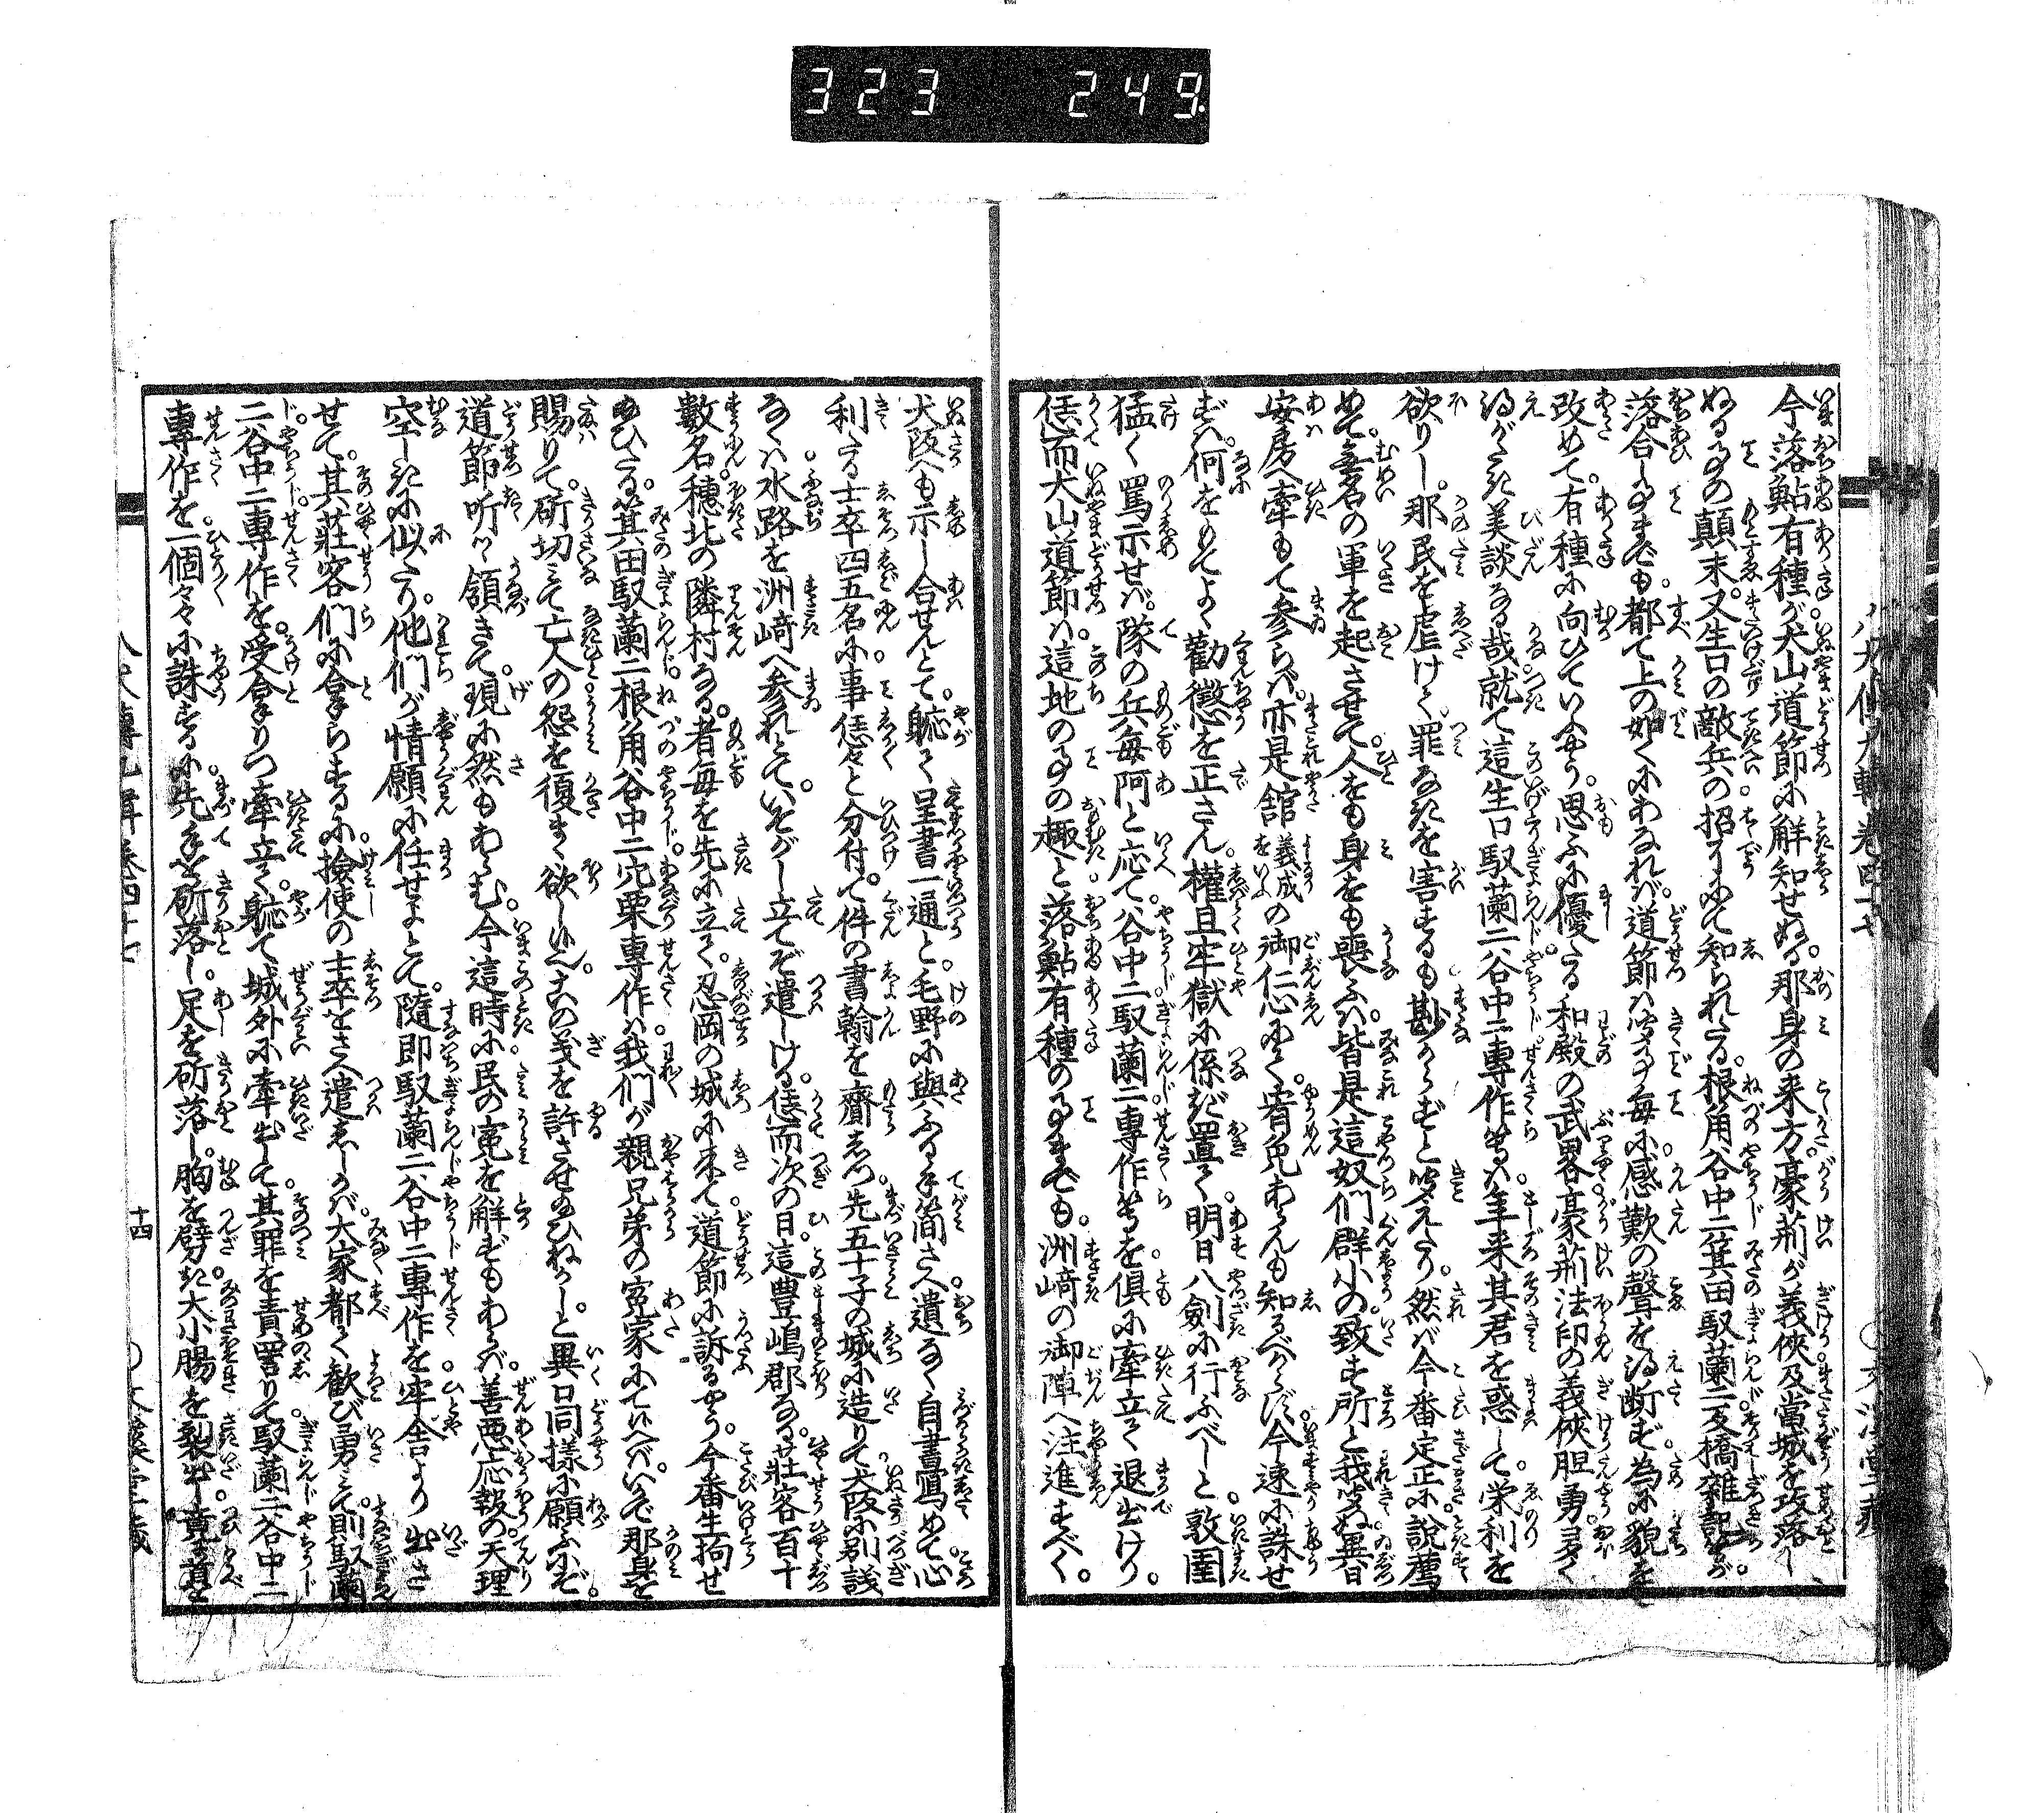 323 249
今落鮎有種が犬山道節に解知せぬる那身の来方豪荊が義侠及當城を攻落し
ぬる事の顛末又生口の敵兵の招了にて知られたる根角谷中二箕田馭蘭二及橋雜記が
落合し事までも都て上の如くにわなれば道節は听く事毎に感歎の聲を得断ず為に貌を
改めて有種に向ひていふやう思ふに優たる和殿の武畧豪荊法印の義侠胆勇多く
得がたき美談なる哉就て這生口馭蘭二谷中二専作等は年来其君を惑して栄利を
欲りし那民を虐げて罪なきを害するも尠からずと聞えたり然ば今番定正に說薦
めて無名の軍を起させて人をも身をも喪ふは皆是這奴們群小の致す所と我等異日
安房へ牽もて参らば亦是舘義成の御仁心にて宥免あらんも知るべからず今速に誅せ
ずば何をもてよく勸懲を正さん權且牢獄に係ぎ置て明日八劍に行ふべしと敦圉
猛く罵示せば隊の兵毎阿と応て谷中二馭蘭二専作等を俱に牽立て退出けり
恁而犬山道節は這地の事の趣と落鮎有種の事までも洲﨑の御陣へ注進すべく
八犬傳九輯卷四十七
十四
犬阪へも示し合せんとて軈て呈書一通と毛野に與ふる手簡さへ遺なく自書寫めて心
利たる士卒四五名に事恁々と分付て件の書翰を齎しつ先五十子の城に造りて犬阪に別議
なくは水路を洲﨑へ参れとていそがし立てぞ遣しける恁而次の日這豊嶋郡なる莊客百十
數名穗北の隣村なる者毎を先に立て忍岡の城に来て道節に訴るやう今番生拘せ
給ひたる箕田馭蘭二根角谷中二穴栗專作は我們が親兄弟の寃家にて候へばいかで那身を
賜りて斫切て亡人の怨を復まく欲し候この義を許させ給ひねかしと異口同樣に願ふにぞ
道節听つゝ頷きて現に然もあらむ今這時に民の寃を解ずもあらば善悪応報の天理
空しきに似たり他們が情願に任せよとて隨即馭蘭二谷中二專作を牢舎より出さ
せて其莊客們に拿らするに撿使の士卒をさへ遣しかば大家都て歡び勇て則馬蘭
二谷中二專作を受拿りつ牽立て軈て城外に牽出て其罪を責詈りて馭蘭二谷中二
專作を一個々々に誅するに先手を斫落し足を斫落し胸を劈き大小腸を裂出し竟に首を